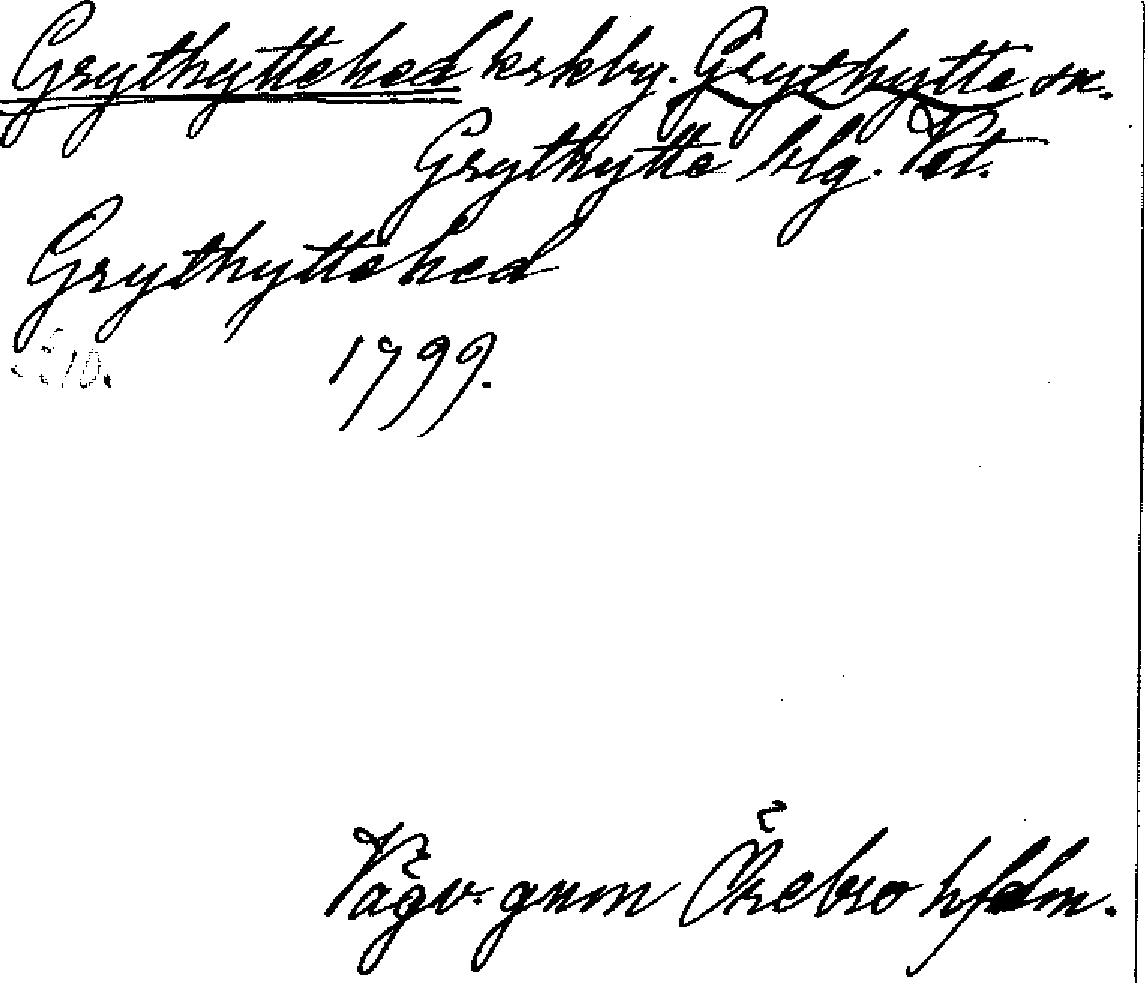 Grythyttehed krkby. Grythytte sn.
Grythytte blg. Vst.
Grythyttehed
1799.
Vägv. gnm Örebro hfdm.